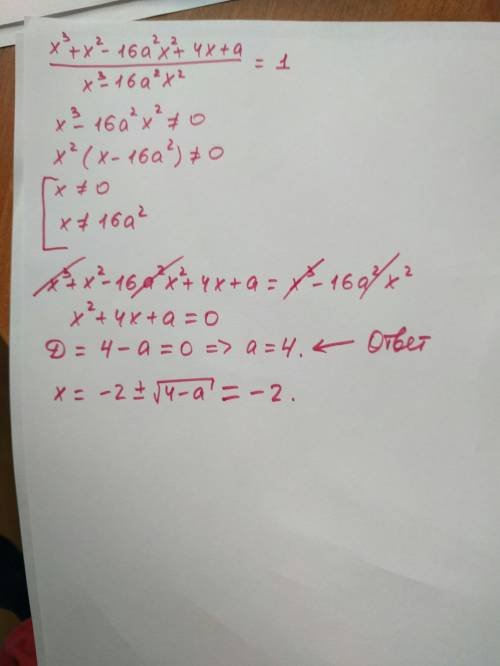 x³ + x² - 16a²x² + 4x + a
x³ - 16a²x²
= 1
x³ - 16a²x² ≠ 0
x² (x - 16a²) ≠ 0
[ x ≠ 0
x ≠ 16a²
x³ + x² - 16a²x² + 4x + a = x³ - 16a²x²
x² + 4x + a = 0
D = 4 - a = 0 => a = 4. ← Ответ
x = -2 ± √4-a = -2.